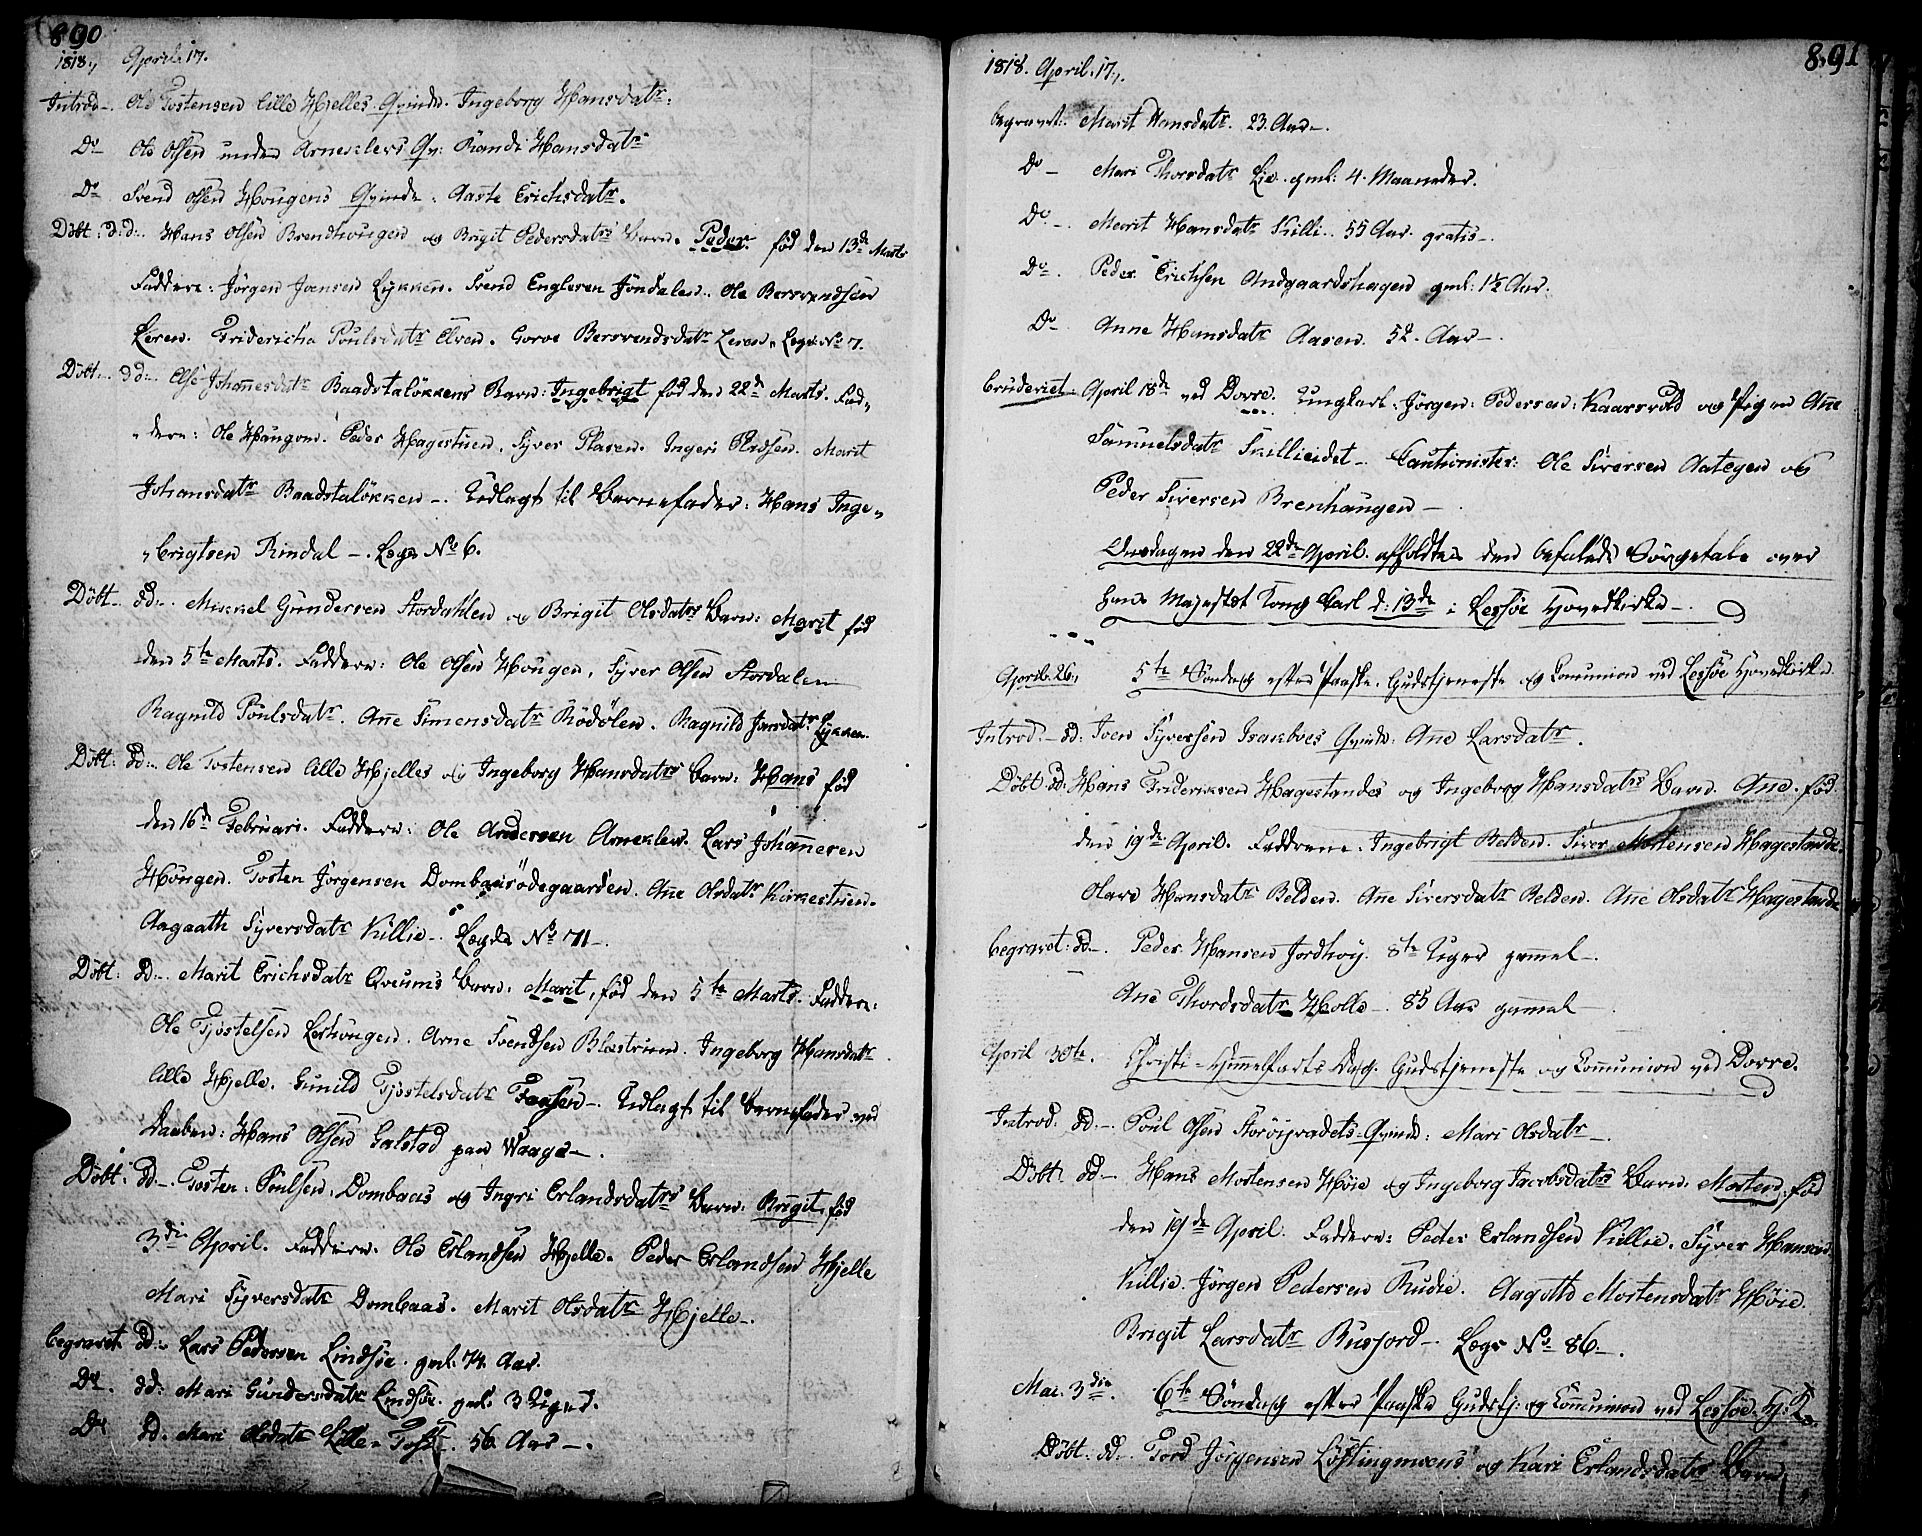 890
1818., April. 17.
Introd-. Ole Tostensen Lille Hjelles Qvinde. Ingeborg Hansdatr:
Do- Ole Olsen under Arneklevs Qv: Randi Hansdatr
Do Svend Olsen Hougens Qvinde: Aaste Erichsdatr.
Döbt: d:d:. Hans Olsen Brendhougen og Brigit Pedersdatrs Barn. Peder. fød den 13de Marts
Faddere: Jørgen Joensen Lykken. Svend Engleren Jöndalen. Ole Bersvendsen
Leren. Fridericha Poulsdatr Elven. Gorve Bersvendsdatr Leren. Legd No 7.
Döbt. dd:. Else Johannesdatr Baadstaløkkens Barn: Ingebrigt fød den 22de Marts. Fad„
„dere: Ole Haugom. Peder Hagestuen. Syver Plasen. Ingeri Pladsen. Marit
Johansdatr Baadstaløkken-. Udlagt til Barnefader: Hans Inge„
„brigtsen Rindal-. Legd No 6.
Döbt. dd:. Mikkel Gundersen Stordahlen og Brigit Olsdatrs Barn: Marit fød
den 5te Marts. Faddere: Ole Olsen Hougen, Syver Olsen Stordalen
Ragnild Poulsdatr. Ane Simensdatr Rödölen. Ragnild Jonsdatr Lykken.
Döbt: dd:. Ole Tostensen Lille Hjelles og Ingeborg Hansdatrs barn: Hans fød
den 16de Februari. Faddere: Ole Andersen Arneklev. Lars Johannesen
Hougen. Tosten Jörgensen Dombaasödegaarden. Ane Olsdatr Kirkestuen.
Aagaath Syversdatr Killie-. Legd No 71-.
Döbt: dd:. Marit Erichsdatr Qveums Barn: Marit, fød den 5te Marts. Faddere:
Ole Tjøstelsen Leshougen. Arne Svendsen Blæstrien. Ingeborg Hansdatr
Lille Hjelle. Gunild Tjöstelsdatr -. Udlagt til Barnefader ved
Daaben: Hans Olsen Galstad paa Waage-.
Döbt: dd-. Tosten Poulsen Dombaas og Ingri Erlandsdatrs Barn: Brigit. fød
3die April. Faddere: Ole Erlandsen Hjelle. Peder Erlandsen Hjelle
Mari Syversdatr Dombaas. Marit Olsdatr Hjelle-.
begravet dd:- Lars Pedersen Lindsöe. gml. 74. Aar.
Do. dd: Mari Gundersdatr Lindsøe. gml. 3 Uger.
Do dd. Mari Olsdatr Lille- . 56 Aar-.
891
1818. April. 17.
begravet:. Marit Hansdatr. 23. Aar-.
Do- Mari Thorsdatr Lie. gml: 4. Maaneder.
Do-. Marit Hansdatr Killi.. 55 Aar. gratis-.
Do. Peder Erichsen Andgaardshagen gml: 1½ Aar:
Do. Anne Hansdatr Aasen. 52. Aar-.
Cruderiet: April 18de ved Dovre. Ungkarl: Jörgen: Pedersen: Kaarsvold og Pigen Ane
Samuelsdatr Killieidet-. Cautionister: Ole Siversen Aategen og
Peder Siversen Brenhaugen-.
Onsdagen den 22de April. afholdtes den befalede Sörgetale over
hans Majestæt Kong Carl d: 13de i Lessøe Hovedkirke-.
April. 26., 5te Söndag efter Paaske. Gudstjeneste og Comunion ved Lessøe Hovedkirke.
Introd.- dd: Joen Syversen Isakboes Qvinde: Ane Larsdatr.
Döbt. dd. Hans Frideriksen Hagestandes og Ingeborg Hansdatrs Barn. Ane. fød.
den 19de April. Faddrene. Ingebrigt Belden. Siver Mortensen Hagestande.
Olave Hansdatr Belden. Ane Siversdatr Belden. Ane Olsdatr Hagestande
begravet: dd-. Peder Hansen Jordhøy. 8te Uger gamel-.
Ane Thordsdatr Holle-. 85 Aar gamel-
April 30te. Christi-Himmelfarts Dag. Gudstjeneste og Communion ved Dovre.
Introd: dd:- Poul Olsen Qvinde: Mari Olsdatr-.
Döbt. dd- Hans Mortensen Høie og Ingeborg Jacobsdatrs Barn. Morten. fød
den 19de April. Faddere: Peder Erlandsen Killie. Syver Hansen
Killie. Jörgen Pedersen Rudie. Aagotte Mortensdatr Høie.
Brigit Larsdatr Busjord-. Legd No 86-.
Mai. 3die. 6te Söndag efter Paaske Gudstj: og Comunion ved Lessøe H: K.
Döbt. dd:. Tord Jörgensen Löftingmoens og Kari Erlandsdatrs Barn